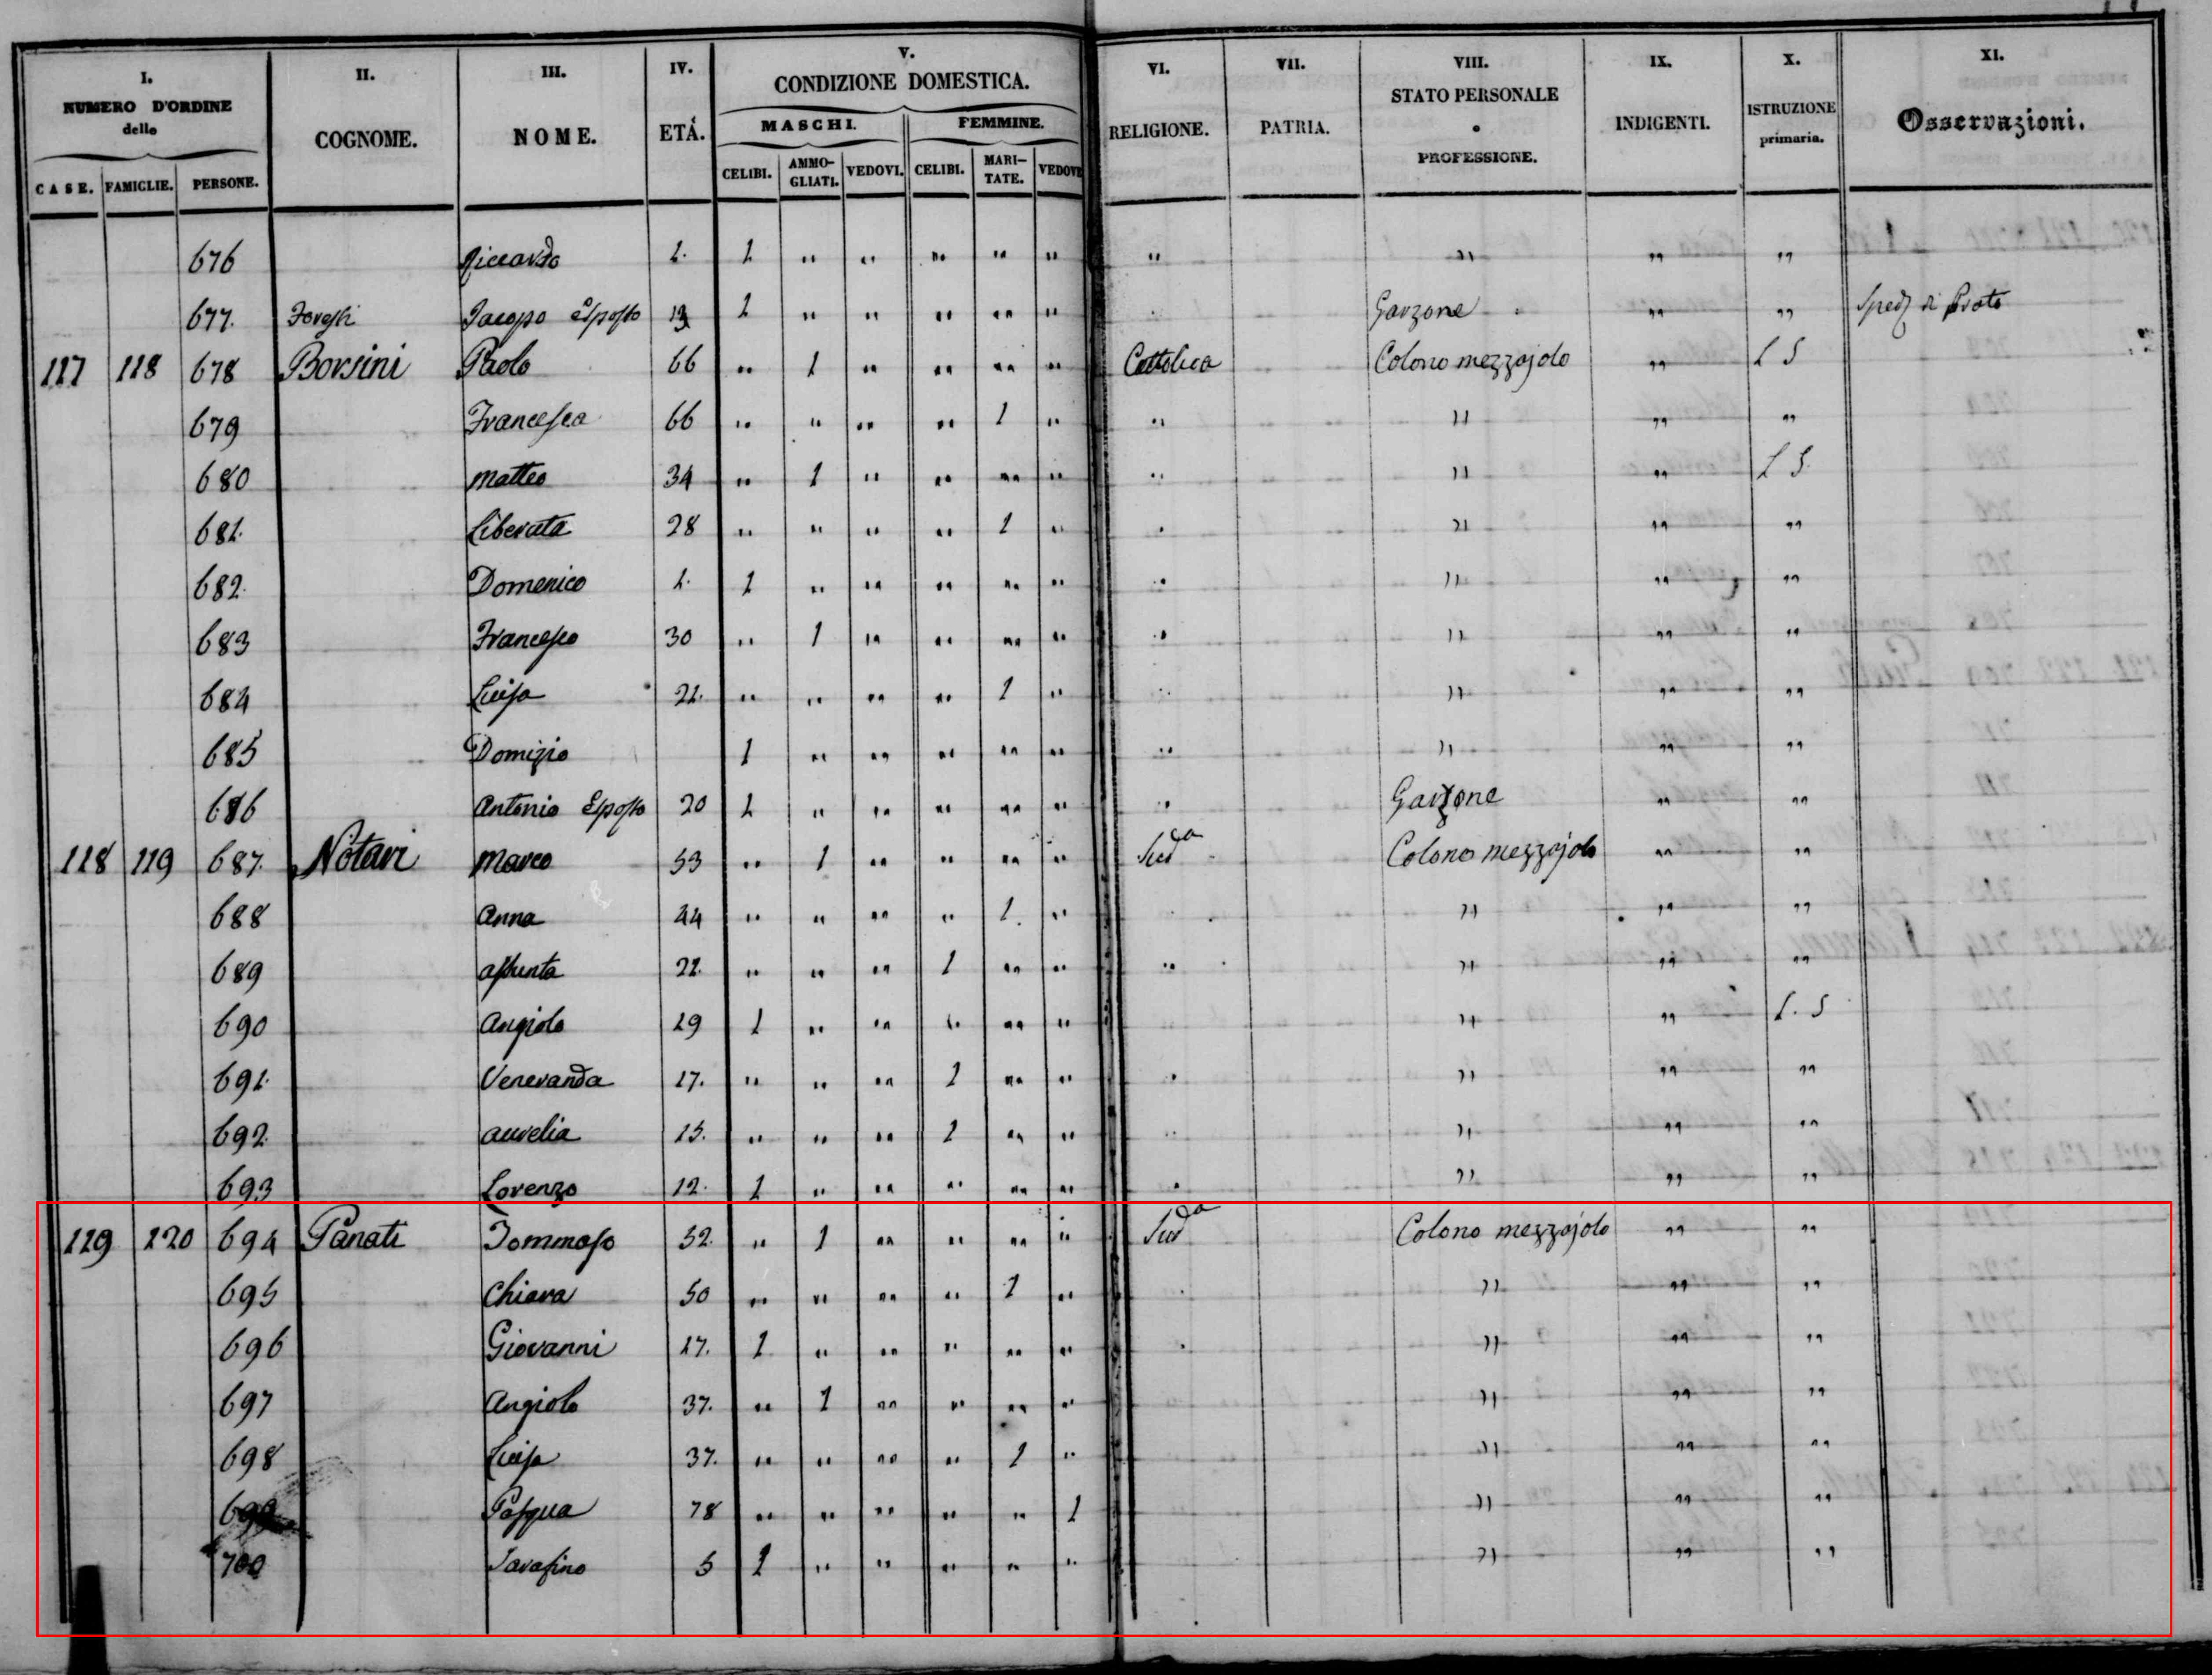 I. II. III. IV. V. VI. VII. VIII. IX. X. XI.
NUMERO D'ORDINE delle COGNOME. NOME. ETÁ. CONDIZIONE DOMESTICA. RELIGIONE. PATRIA. STATO PERSONALE o PROFESSIONE. INDIGENTI. ISTRUZIONE primaria. Osservazioni.
MASCHI. FEMMINE.
CASE. FAMIGLIE. PERSONE. CELIBI. AMMO-GLIATI. VEDOVI. CELIBI. MARI-TATE. VEDOVE
676 Riccardo 1. 1 " " " " " " " " "
677. Jacopo Esposto 13 1 " " " " " Garzone " " Sped. di Prato
117 118 678 Borsini Paolo 66 " 1 " " " " Cattolica Colono mezzajolo " L S
679 Francesca 66 " " " " 1 " " " " "
680 Matteo 34 " 1 " " " " " " " L S.
681. Liberata 28 " " " " 1 " " " "
682. Domenico 1. 1 " " " " " " " " "
683 Francesco 30 " 1 " " " " " " " "
684 Luisa 21. " " " " 1 " " " " "
685 Domizio 1 " " " " " " " " "
686 Antonio Esposto 20 1 " " " " " " Garzone " "
118 119 687. Notari Marco 53 " 1 " " " " Sudª Colono mezzajolo " "
688 Anna 44 " " " " 1. " " " "
689 Assunta 22. " " " 1 " " " " " "
690 Angiolo 19 1 " " " " " " " L. S
691. Veneranda 17. " " " 1 " " " " "
692. Aurelia 15. " " " 1 " " " " " "
693 Lorenzo 12. 1 " " " " " " " "
119 120 694 Panati Tommaso 52. " 1 " " " " Sudª Colono mezzajolo " "
695 Chiara 50 " " " " 1 " " " "
696 Giovanni 17. 1 " " " " " " " "
697 Angiolo 37. " 1 " " " " " " "
698 Luisa 37. " " " " 1 " " " "
699 Pasqua 78 " " " " " 1 " " "
700 Sarafino 5 1 " " " " " " " "